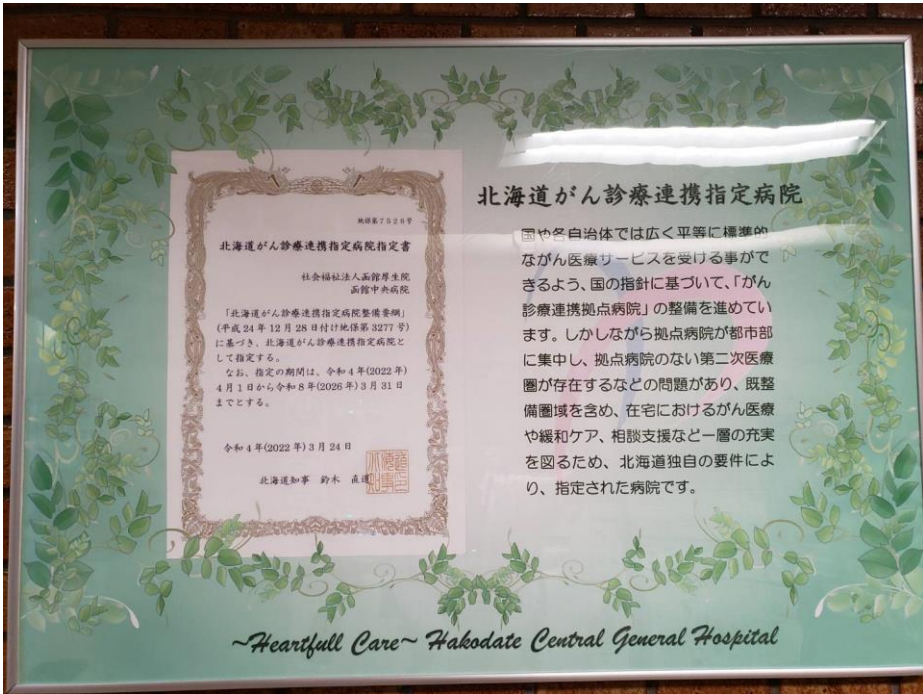 地保第7526号
北海道がん診療連携指定病院指定書
社会福祉法人函館厚生院
函館中央病院
「北海道がん診療連携指定病院整備要綱」
(平成24年12月28日付け地保第3277号)
に基づき、北海道がん診療連携指定病院と
して指定する。
なお、指定の期間は、令和4年(2022年)
4月1日から令和8年(2026年)3月31日
までとする。
令和4年(2022年)3月24日
北海道知事 鈴木 直道
北海道がん診療連携指定病院
国や各自治体では広く平等に標準的
ながん医療サービスを受ける事がで
きるよう、国の指針に基づいて、「がん
診療連携拠点病院」の整備を進めてい
ます。しかしながら拠点病院が都市部
に集中し、拠点病院のない第二次医療
圏が存在するなどの問題があり、既整
備圏域を含め、在宅におけるがん医療
や緩和ケア、相談支援など一層の充実
を図るため、北海道独自の要件によ
り、指定された病院です。
~Heartfull Care~ Hakodate Central General Hospital